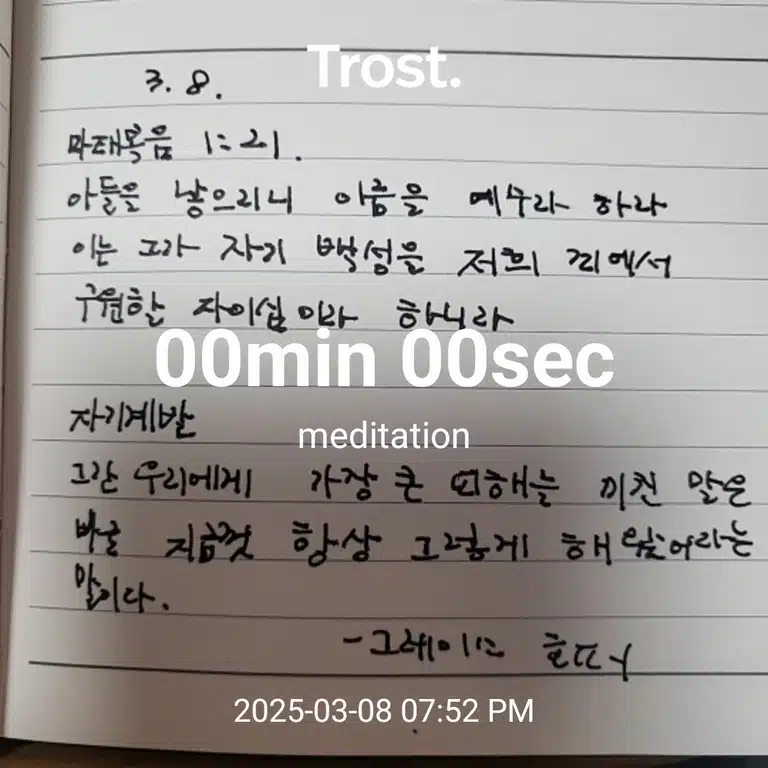 Trost.
3. 8.
마태복음 1:21.
아들을 낳으리니 이름을 예수라 하라
이는 그가 자기 백성을 저희 죄에서
구원할 자이심이라 하니라
00min 00sec
자기계발
meditation
그간 우리에게 가장 큰 피해를 끼친 말은
바로 지금껏 항상 그렇게 해 왔어라는
말이다.
- 그레이스 호퍼
2025-03-08 07:52 PM